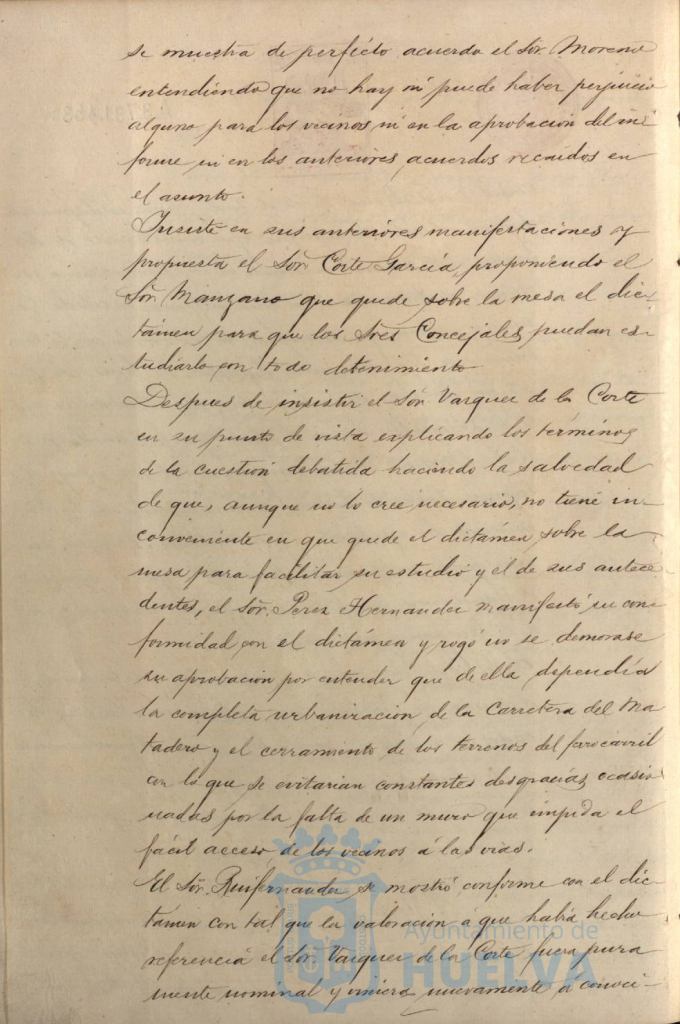 se muestra de perfecto acuerdo el Sor. Moreno
entendiendo que no hay ni puede haber perjuicio
alguno para los vecinos ni en la aprobación del in-
forme ni en los anteriores acuerdos recaidos en
el asunto.
Insiste en sus anteriores manifestaciones y
propuesta el Sor. Corte García, proponiendo el
Sor. Manzano que quede sobre la mesa el dic-
támen para que los Sres Concejales puedan es-
tudiarlo con todo detenimiento
Despues de insistir el Sor. Vazquez de la Corte
en su punto de vista explicando los términos
de la cuestión debatida haciendo la salvedad
de que, aunque no lo cree necesario, no tiene in-
conveniente en que quede el dictámen sobre la
mesa para facilitar su estudio y el de sus antece-
dentes, el Sor. Perez Hernandez manifestó su con-
formidad con el dictámen y rogó no se demorase
su aprobacion por entender que de ella dependía
la completa urbanizacion de la Carretera del Ma-
tadero y el cerramiento de los terrenos del ferrocarril
con lo que se evitarian constantes desgracias ocasio-
nadas por la falta de un muro que impida el
fácil acceso de los vecinos á las vias.
El Sor. Ruifernandez se mostró conforme con el dic-
tamen con tal que la valoracion a que habia hecho
referencia el Sor. Vazquez de la Corte fuera pura-
mente nominal y viniera nuevamente a conoci-
Ayuntamiento de
HUELVA